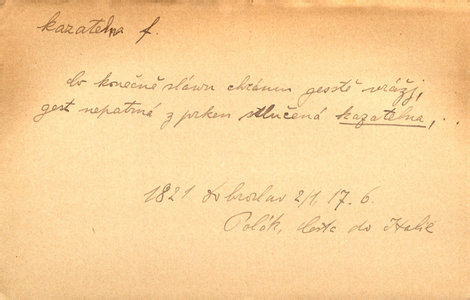 kazatelna f.
co konečně sláwu chrámu gesstě uráží,
gest nepatrná z prken stlučená kazatelna,..
1821 Dobroslav 2/1. 17. 6.
Polák, Cesta do Italie